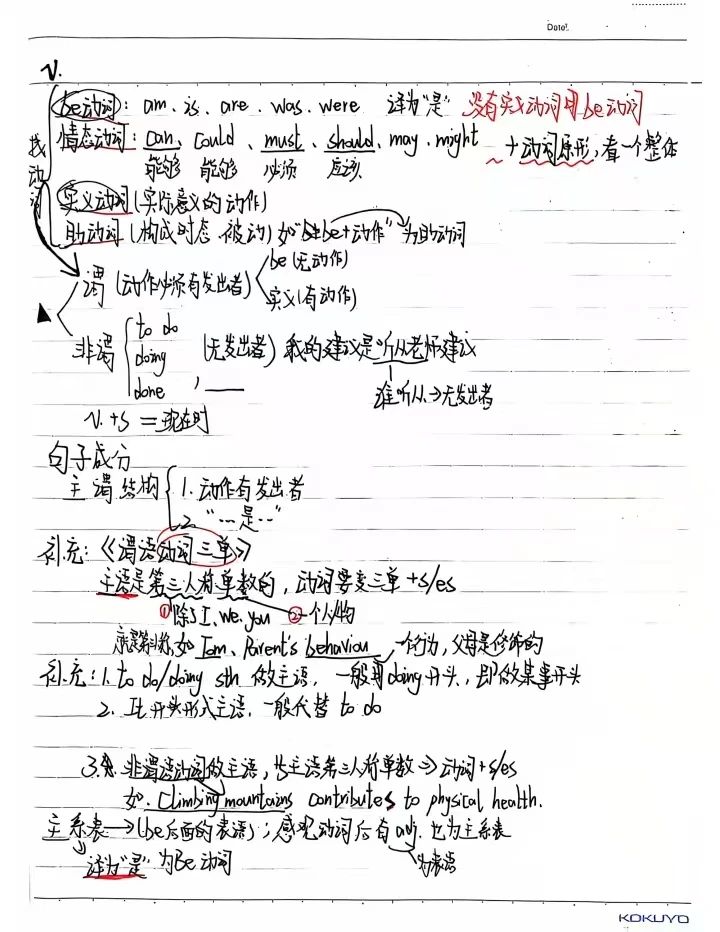 Date
v.
be动词: am、is、are、was、were 译为"是" 没有实义动词用be动词
情态动词: can、could、must、should、may、might +动词原形,看一个整体
能够 能够 必须 应该
找动词
实义动词(实际意义的动作)
助动词(构成时态、被动) 如"be+动作"为助动词
谓(动作必须有发出者) be(无动作)
实义(有动作)
非谓 to do
doing (无发出者) 我的建议是听从老师建议
done 谁听从→无发出者
v.+s=现在时
句子成分
主谓结构 1.动作有发出者
2."…是…"
补充:《谓语动词三单》
主语是第三人称单数的,动词要变三单+s/es
①除了I、we、you ②一个人/物
就是第三人称,如Tom、Parent's behaviour 一个行为,父母是修饰的
补充:1.to do/doing sth 做主语,一般用doing开头,即做某事开头
2. It开头形式主语,一般代替to do
3. 非谓语动词做主语,当主语第三人称单数⇒动词+s/es
如. Climbing mountains contributes to physical health.
主系表→(be后面的表语);感观动词后有adj.也为主系表
译为"是"为Be动词 为表语
KOKUYO